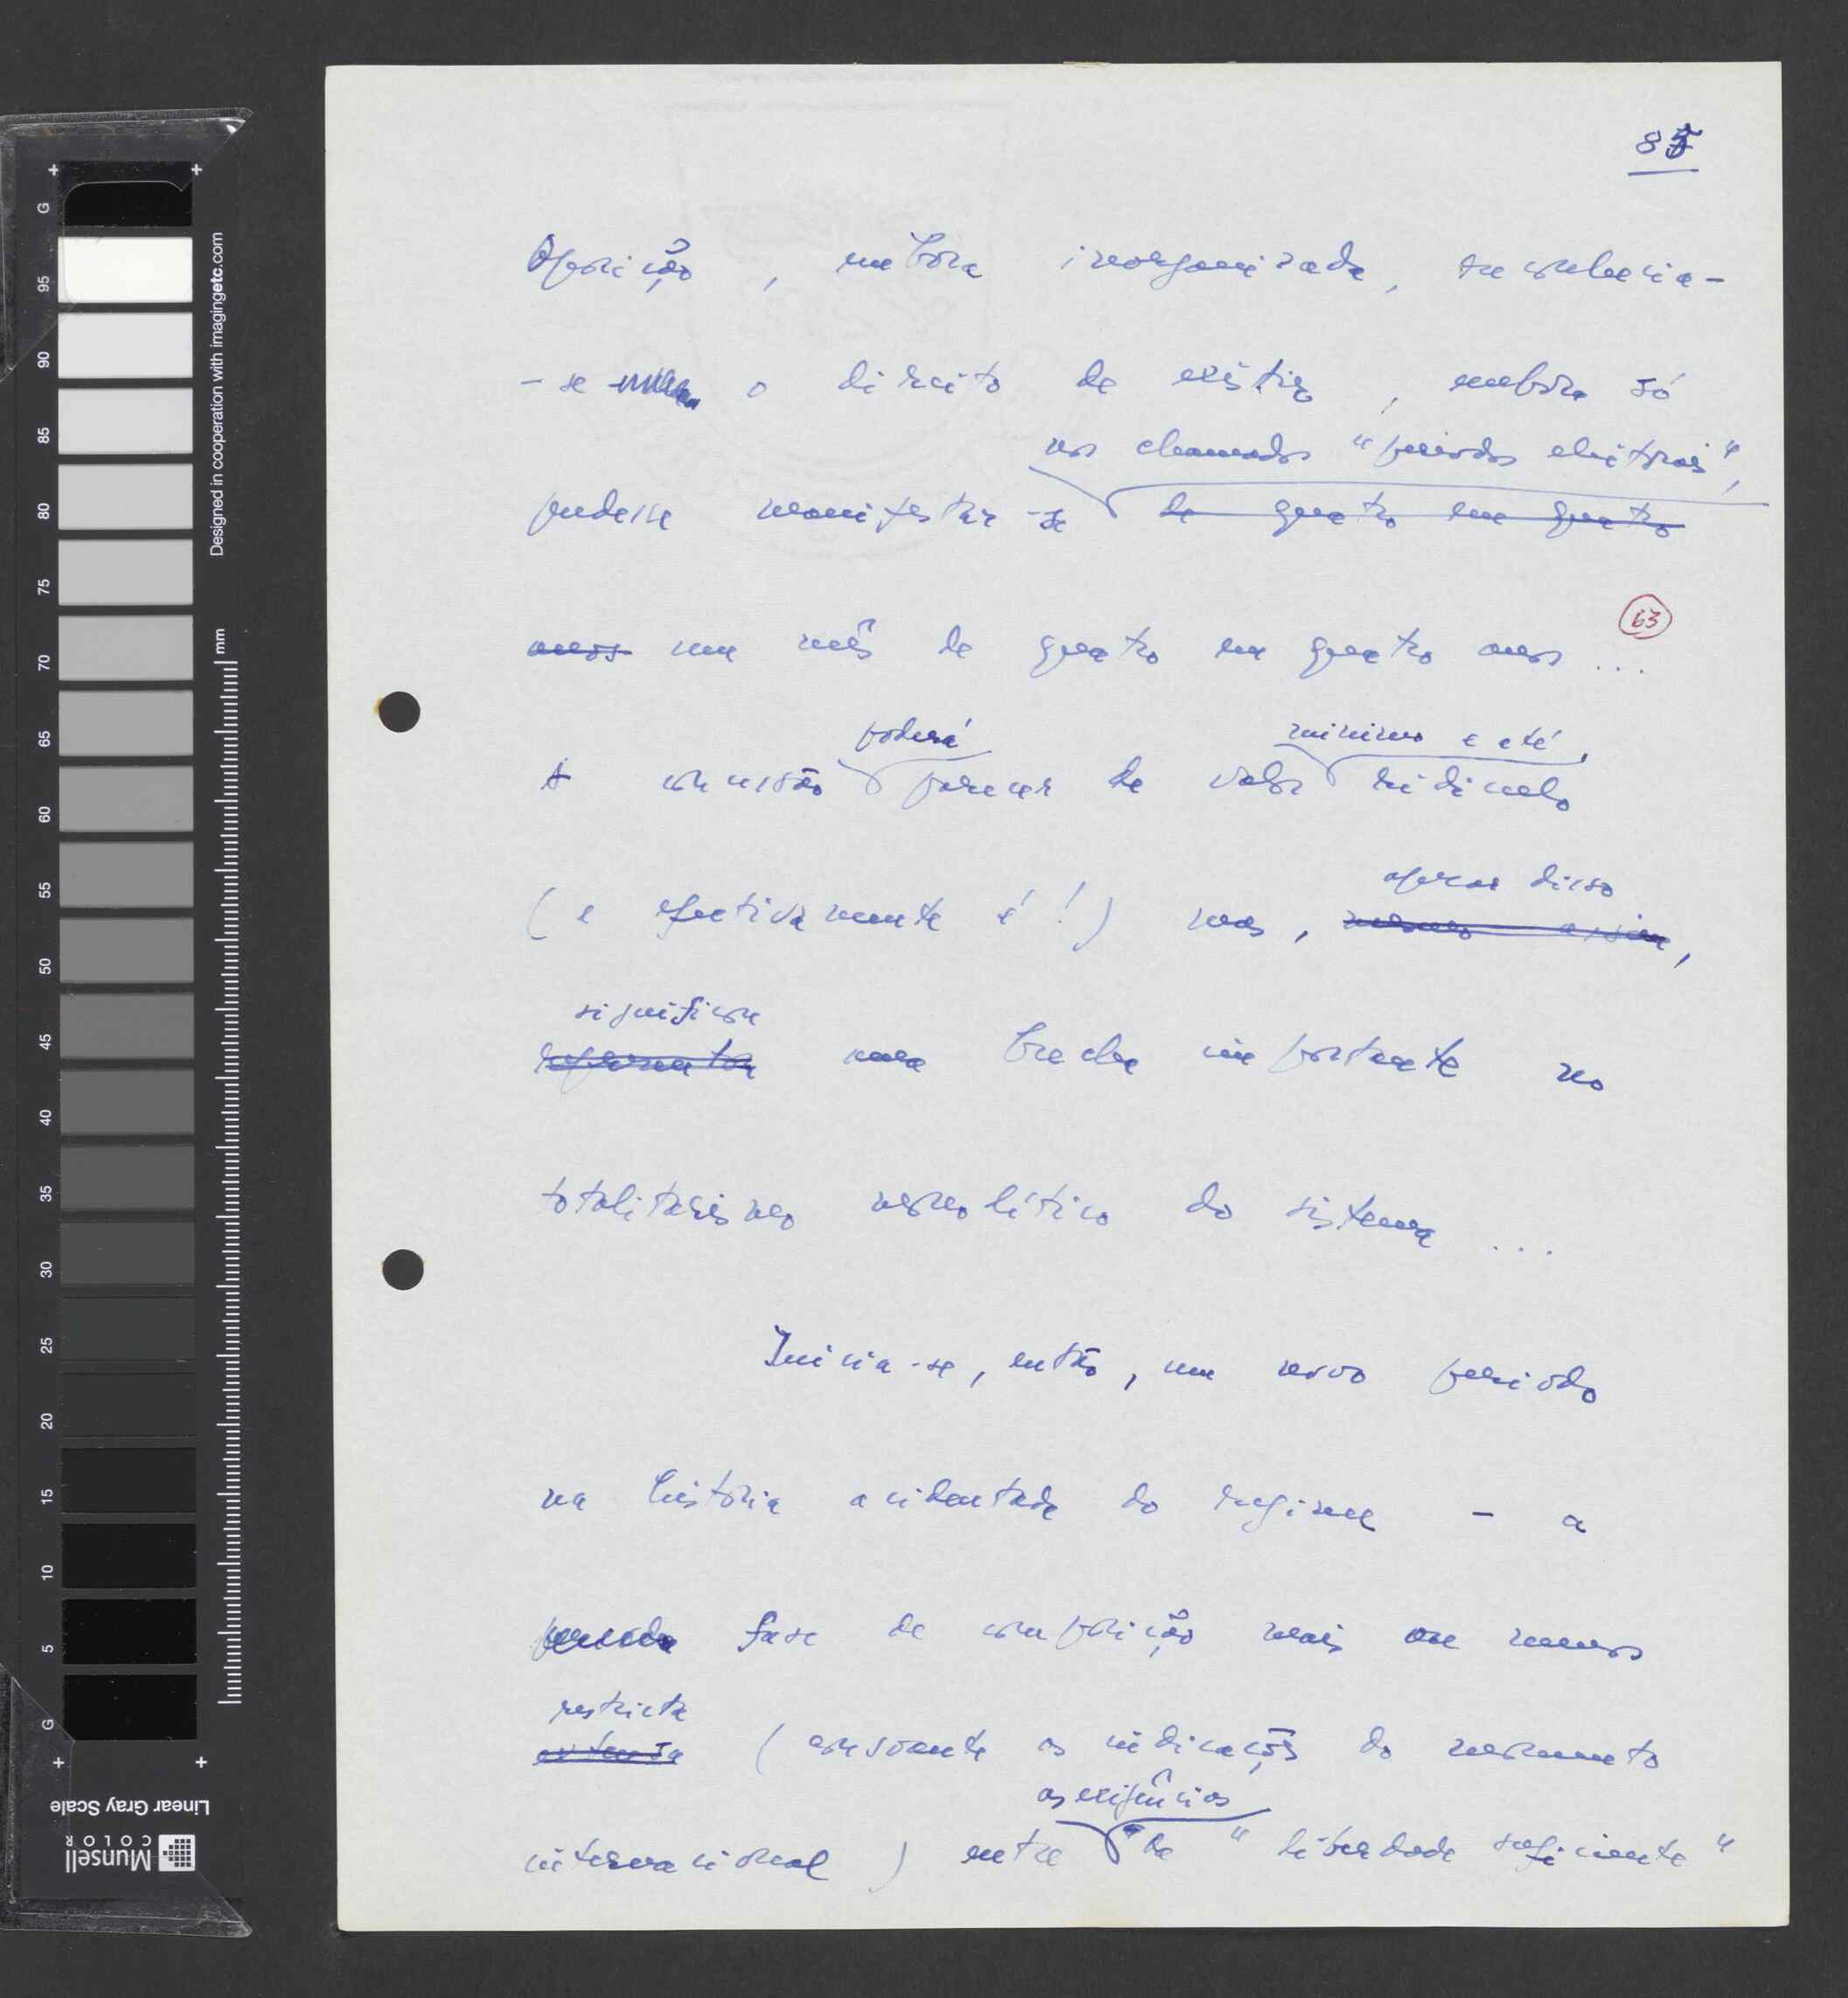 85
Oposição, embora inorganizada, reconhecia-
-se o direito de existir, embora só
nos chamados "períodos eleitorais",
pudesse manifestar-se de quatro em quatro
anos um mês de quatro em quatro anos...
63
poderá mínimo e até,
A concessão parecer de valor ridículo
apesar disso
(e efectivamente é!) mas, mesmo assim,
significou
representou uma brecha importante no
totalitarismo monolítico do sistema...
Inicia-se, então, um novo período
na história acidentada do regime - a
fase de composição mais ou menos
restricta
extensa (consoante as indicações do momento
as exigências
internacional) entre de "liberdade suficiente"
Designed in cooperation with imagingetc.com
mm
G 95 90 85 80 75 70 65 60 55 50 45 40 35 30 25 20 15 10 5 G
Linear Gray Scale
Munsell
COLOR